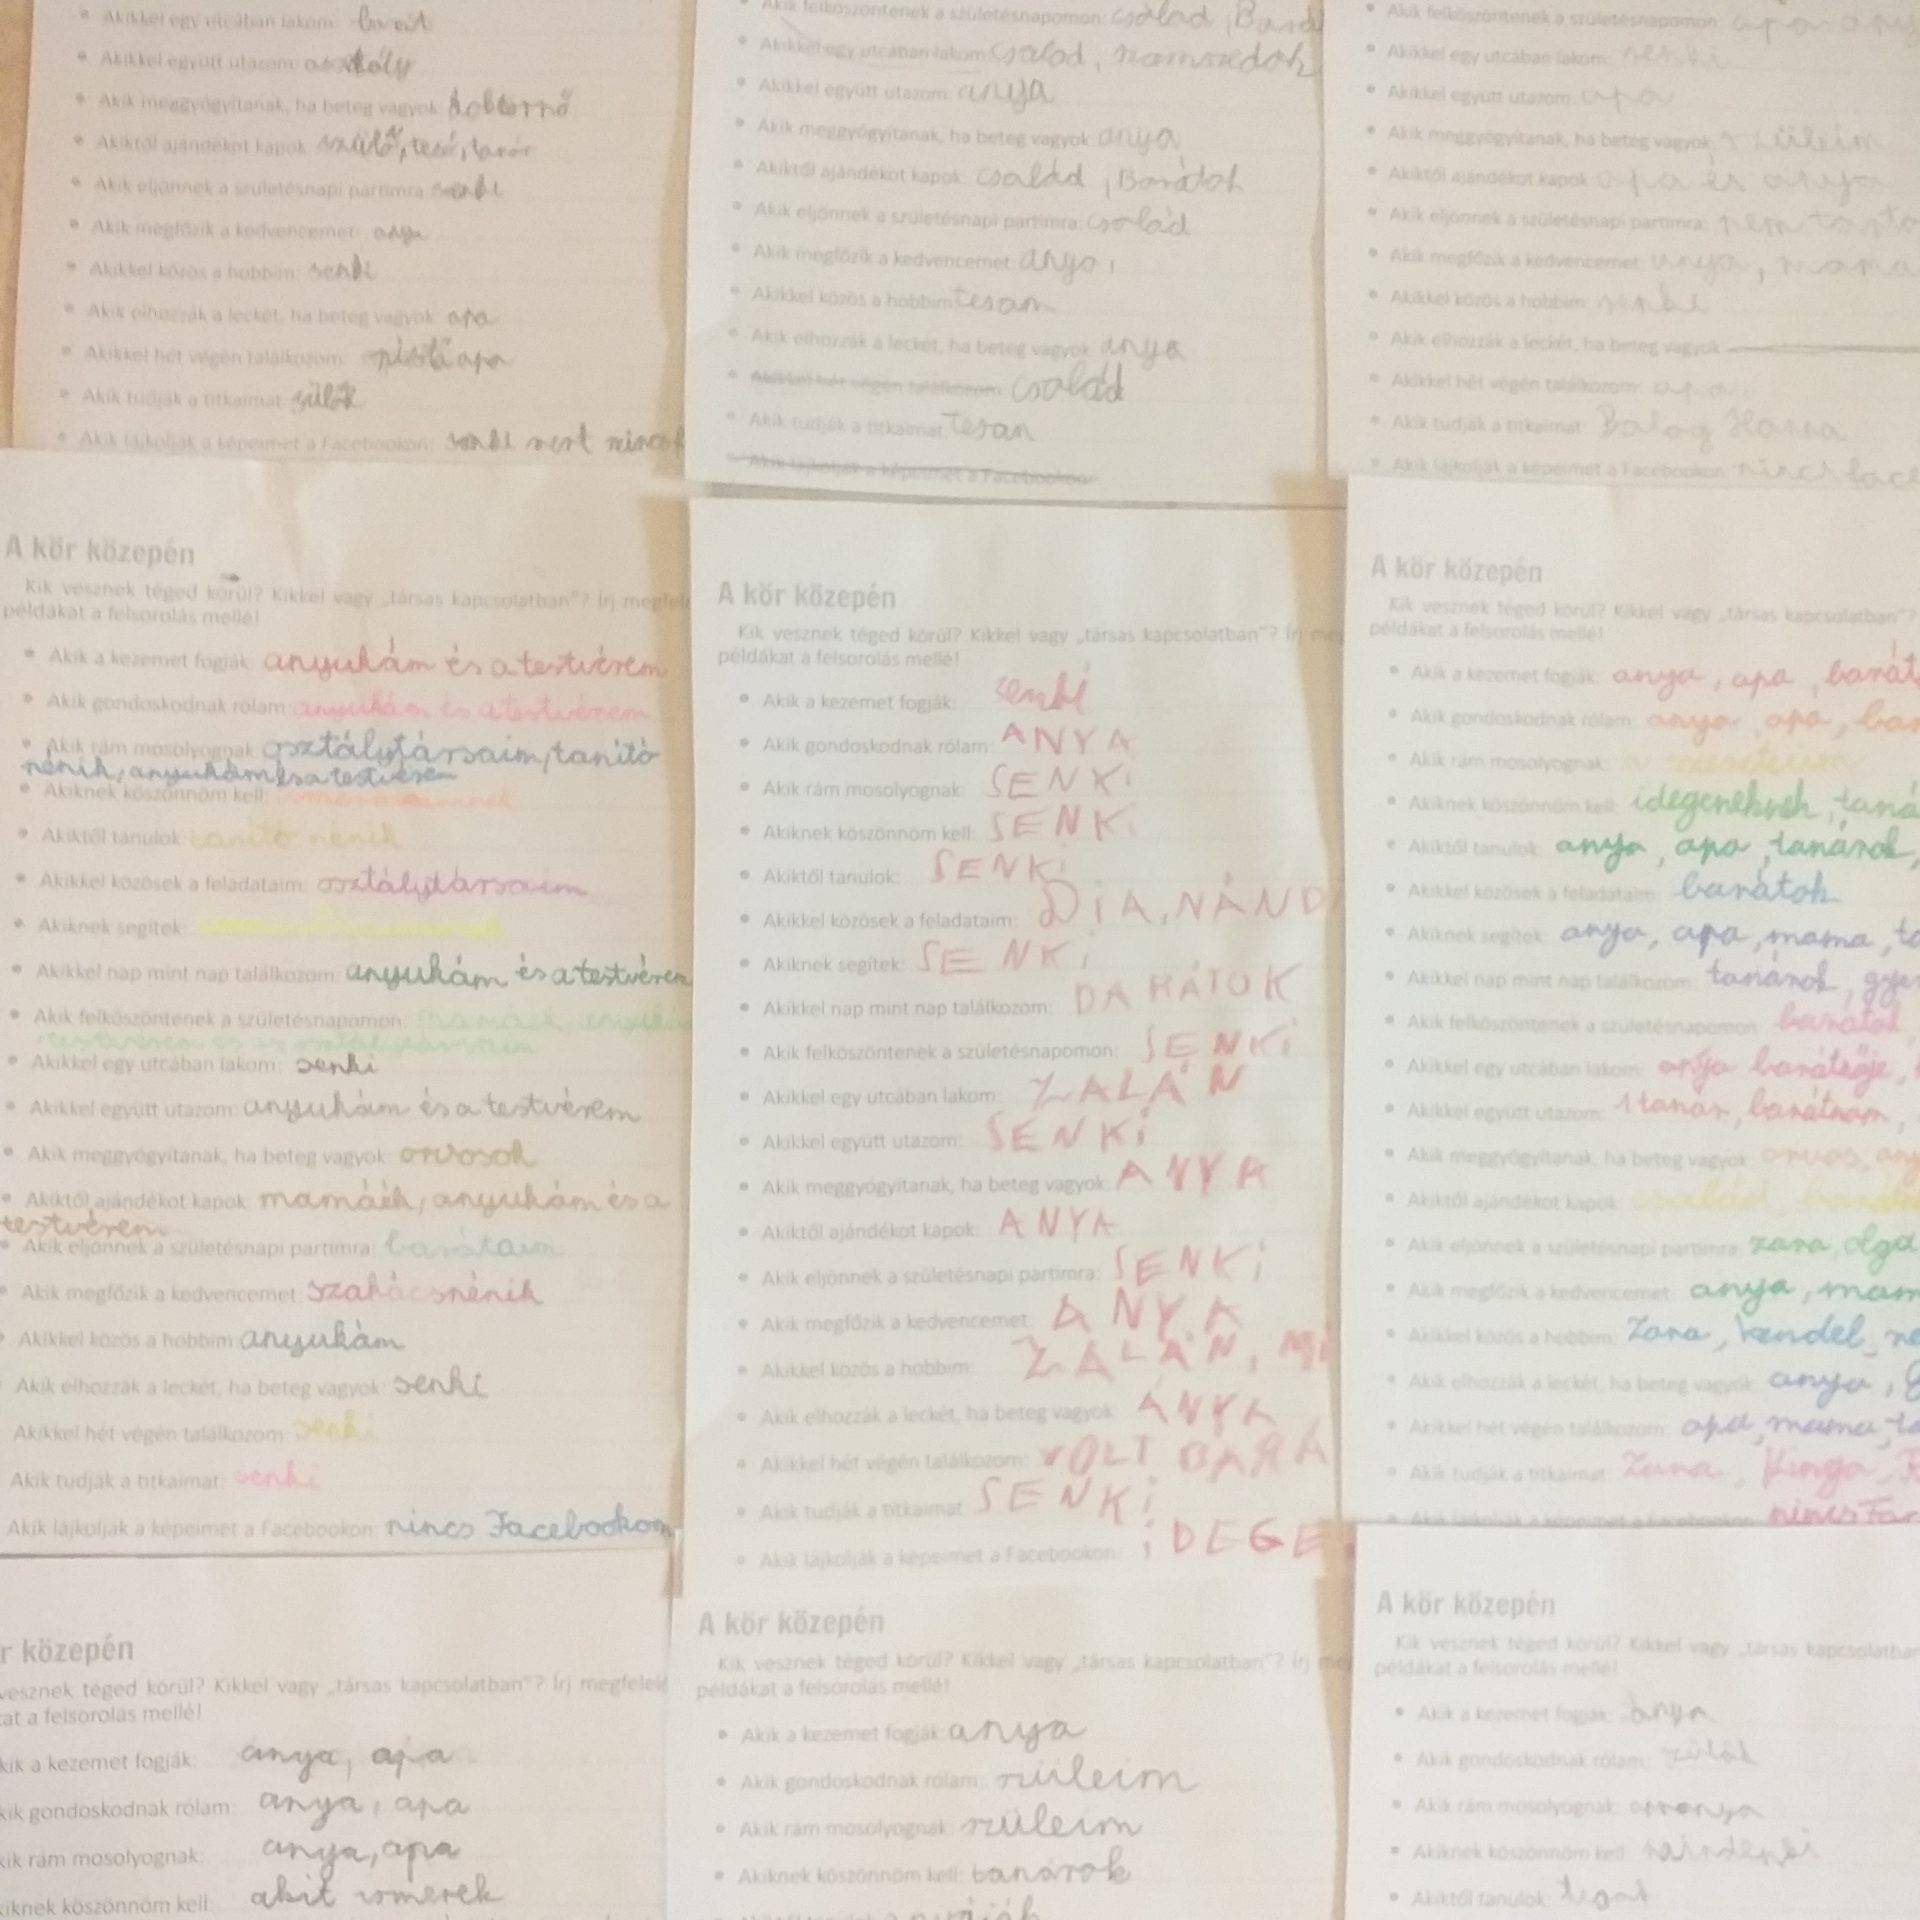 Akikkel egy utcában lakom:
Akikkel együtt utazom: osztály
Akik meggyógyítanak, ha beteg vagyok: doktornő
Akiktől ajándékot kapok: szülő, tesó, tanár
Akik eljönnek a születésnapi partimra: senki
Akik megfőzik a kedvencemet: anya
Akikkel közös a hobbim: senki
Akik elhozzák a leckét, ha beteg vagyok: apa
Akikkel hét végén találkozom: apa
Akik tudják a titkaimat:
Akik lájkolják a képeimet a Facebookon: senki mert nincs
Akik felköszöntenek a születésnapomon: család, Bará
Akikkel egy utcában lakom: család,
Akikkel együtt utazom: anya
Akik meggyógyítanak, ha beteg vagyok: anya
Akiktől ajándékot kapok: család, Barátok
Akik eljönnek a születésnapi partimra: család
Akik megfőzik a kedvencemet: anya,
Akikkel közös a hobbim: tesam
Akik elhozzák a leckét, ha beteg vagyok: anya
Akikkel hét végén találkozom: család
Akik tudják a titkaimat: Tesan
Akik lájkolják a képeimet a Facebookon:
Akik felköszöntenek a születésnapomon: apa any
Akikkel egy utcában lakom: senki
Akikkel együtt utazom: apa
Akik meggyógyítanak, ha beteg vagyok: szüleim
Akiktől ajándékot kapok: apa és anya
Akik eljönnek a születésnapi partimra: nem tarto
Akik megfőzik a kedvencemet: anya, mama
Akikkel közös a hobbim: senki
Akik elhozzák a leckét, ha beteg vagyok:
Akikkel hét végén találkozom: apa
Akik tudják a titkaimat: Balog Hanna
Akik lájkolják a képeimet a Facebookon: nincs face
A kör közepén
Kik vesznek téged körül? Kikkel vagy „társas kapcsolatban"? Írj megfele
példákat a felsorolás mellé!
Akik a kezemet fogják: anyukám és a testvérem
Akik gondoskodnak rólam: anyukám és a testvérem
Akik rám mosolyognak: osztálytársaim, tanító
nénik, anyukám és a testvérem
Akiknek köszönnöm kell:
Akiktől tanulok: tanító nénik
Akikkel közösek a feladataim: osztálytársaim
Akiknek segítek:
Akikkel nap mint nap találkozom: anyukám és a testvérem
Akik felköszöntenek a születésnapomon: mamáék, anyukám
testvérem és az osztálytársaim
Akikkel egy utcában lakom: senki
Akikkel együtt utazom: anyukám és a testvérem
Akik meggyógyítanak, ha beteg vagyok: orvosok
Akiktől ajándékot kapok: mamáék, anyukám és a
testvérem
Akik eljönnek a születésnapi partimra: barátaim
Akik megfőzik a kedvencemet: szakácsnénik
Akikkel közös a hobbim: anyukám
Akik elhozzák a leckét, ha beteg vagyok: senki
Akikkel hét végén találkozom: senki
Akik tudják a titkaimat: senki
Akik lájkolják a képeimet a Facebookon: nincs Facebookom
A kör közepén
Kik vesznek téged körül? Kikkel vagy „társas kapcsolatban"? Írj meg
példákat a felsorolás mellé!
Akik a kezemet fogják: senki
Akik gondoskodnak rólam: ANYA
Akik rám mosolyognak: SENKi
Akiknek köszönnöm kell: SENKi
Akiktől tanulok: SENKi
Akikkel közösek a feladataim: DiA, NÁNDi
Akiknek segítek: SENKi
Akikkel nap mint nap találkozom: BARÁTOK
Akik felköszöntenek a születésnapomon: SENKi
Akikkel egy utcában lakom: ZALÁN
Akikkel együtt utazom: SENKi
Akik meggyógyítanak, ha beteg vagyok: ANYA
Akiktől ajándékot kapok: ANYA
Akik eljönnek a születésnapi partimra: SENKi
Akik megfőzik a kedvencemet: ANYA
Akikkel közös a hobbim: ZALÁN, Mi
Akik elhozzák a leckét, ha beteg vagyok: ANYA
Akikkel hét végén találkozom: VOLT BARÁ
Akik tudják a titkaimat: SENKi
Akik lájkolják a képeimet a Facebookon: iDEGE
A kör közepén
Kik vesznek téged körül? Kikkel vagy „társas kapcsolatban"?
példákat a felsorolás mellé!
Akik a kezemet fogják: anya, apa, barát
Akik gondoskodnak rólam: anya, apa, bar
Akik rám mosolyognak:
Akiknek köszönnöm kell: idegeneknek, taná
Akiktől tanulok: anya, apa, tanárok,
Akikkel közösek a feladataim: barátok
Akiknek segítek: anya, apa, mama, ta
Akikkel nap mint nap találkozom: tanárok, gye
Akik felköszöntenek a születésnapomon: barátok,
Akikkel egy utcában lakom: anya barátnője,
Akikkel együtt utazom: 1 tanár, barátnőm,
Akik meggyógyítanak, ha beteg vagyok: orvos, any
Akiktől ajándékot kapok: család, bará
Akik eljönnek a születésnapi partimra: zara, olga
Akik megfőzik a kedvencemet: anya, mam
Akikkel közös a hobbim: Zara, Vendel,
Akik elhozzák a leckét, ha beteg vagyok: anya,
Akikkel hét végén találkozom: apa, mama, ta
Akik tudják a titkaimat: Zara, Kinga,
Akik lájkolják a képeimet a Facebookon: nincs Fac
r közepén
vesznek téged körül? Kikkel vagy „társas kapcsolatban"? Írj megfelelő
kat a felsorolás mellé!
kik a kezemet fogják: anya, apa
kik gondoskodnak rólam: anya, apa
kik rám mosolyognak: anya, apa
kiknek köszönnöm kell: akit ismerek
A kör közepén
Kik vesznek téged körül? Kikkel vagy „társas kapcsolatban"? Írj meg
példákat a felsorolás mellé!
Akik a kezemet fogják: anya
Akik gondoskodnak rólam: szüleim
Akik rám mosolyognak: szüleim
Akiknek köszönnöm kell: tanárok
A kör közepén
Kik vesznek téged körül? Kikkel vagy „társas kapcsolatban
példákat a felsorolás mellé!
Akik a kezemet fogják: anya
Akik gondoskodnak rólam:
Akik rám mosolyognak:
Akiknek köszönnöm kell: mindenki
Akiktől tanulok: